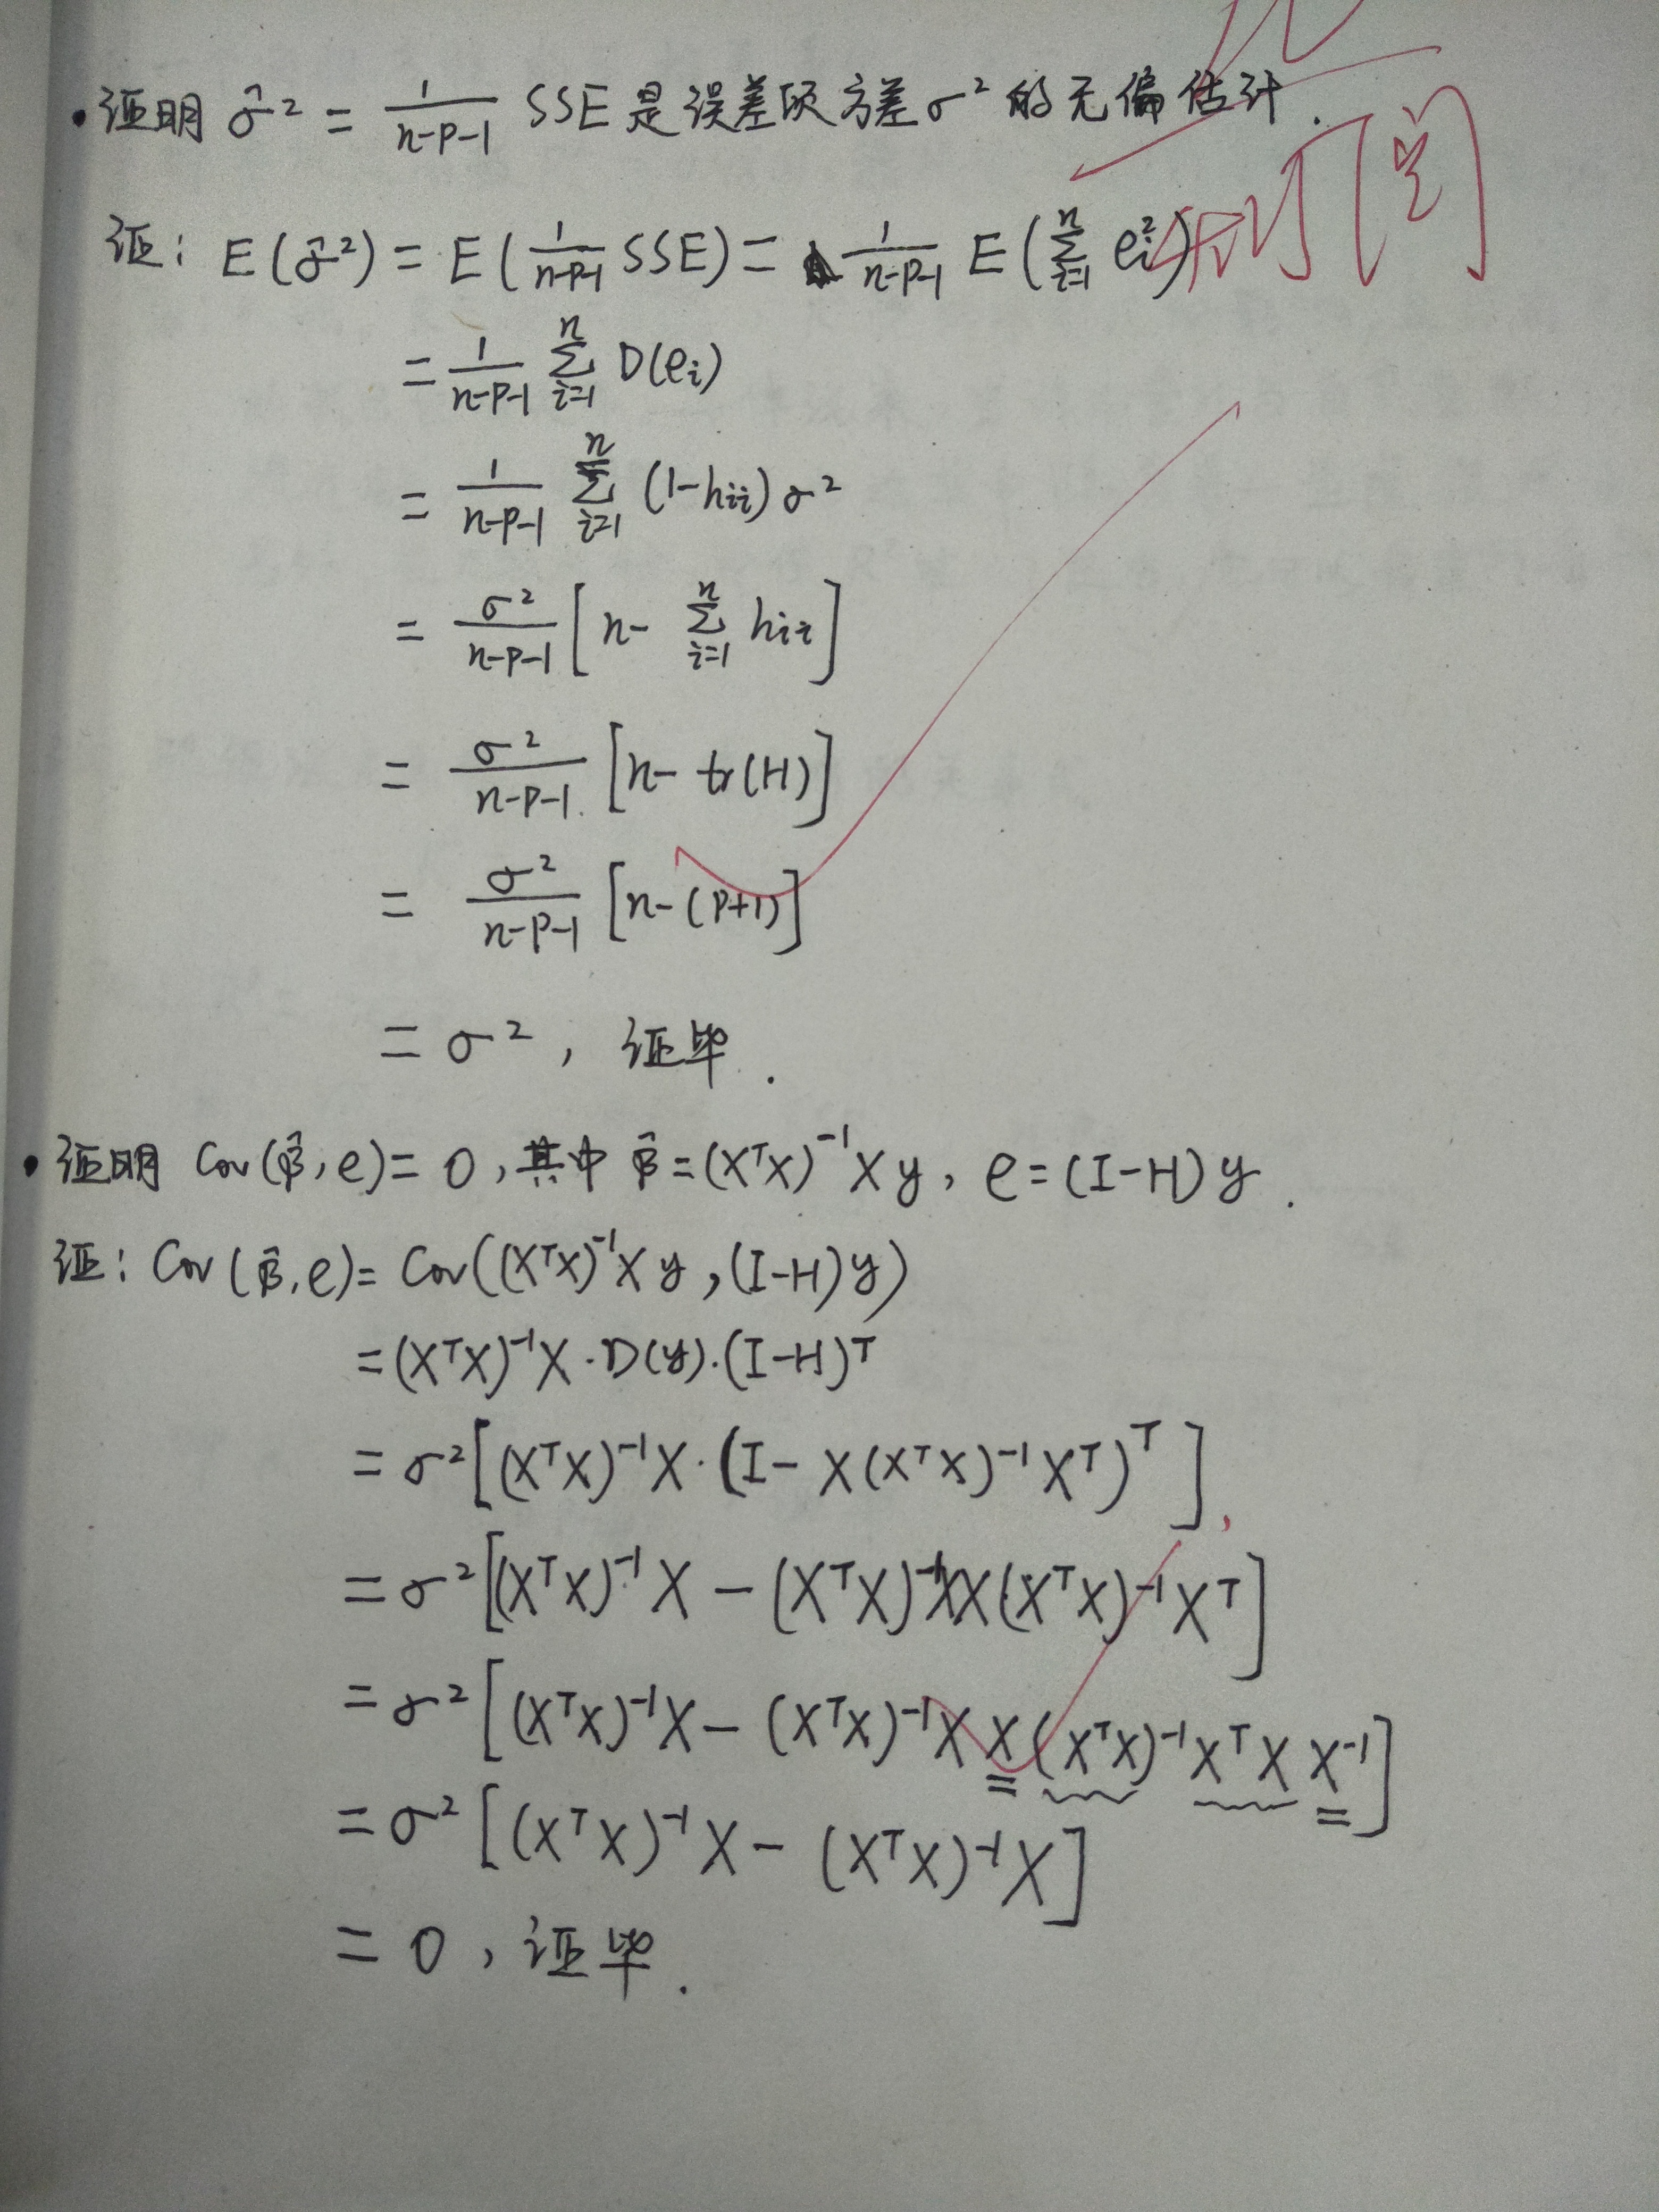 • 证明 σ̂² = 1/(n-p-1) SSE 是误差项方差σ²的无偏估计.
证: E(σ̂²) = E(1/(n-p-1) SSE) = 1/(n-p-1) E(∑_{i=1}^{n} e_i²)
= 1/(n-p-1) ∑_{i=1}^{n} D(e_i)
= 1/(n-p-1) ∑_{i=1}^{n} (1-h_{ii})σ²
= σ²/(n-p-1) [n- ∑_{i=1}^{n} h_{ii}]
= σ²/(n-p-1) [n- tr(H)]
= σ²/(n-p-1) [n-(p+1)]
= σ², 证毕.
• 证明 Cov(β̂, e) = 0, 其中 β̂ = (XᵀX)⁻¹Xy, e = (I-H)y.
证: Cov(β̂, e) = Cov((XᵀX)⁻¹Xy, (I-H)y)
= (XᵀX)⁻¹X·D(y)·(I-H)ᵀ
= σ²[(XᵀX)⁻¹X·(I- X(XᵀX)⁻¹Xᵀ)ᵀ]
= σ²[(XᵀX)⁻¹X - (XᵀX)⁻¹XX(XᵀX)⁻¹Xᵀ]
= σ²[(XᵀX)⁻¹X - (XᵀX)⁻¹X X(XᵀX)⁻¹XᵀX X⁻¹]
= σ²[(XᵀX)⁻¹X - (XᵀX)⁻¹X]
= 0, 证毕.